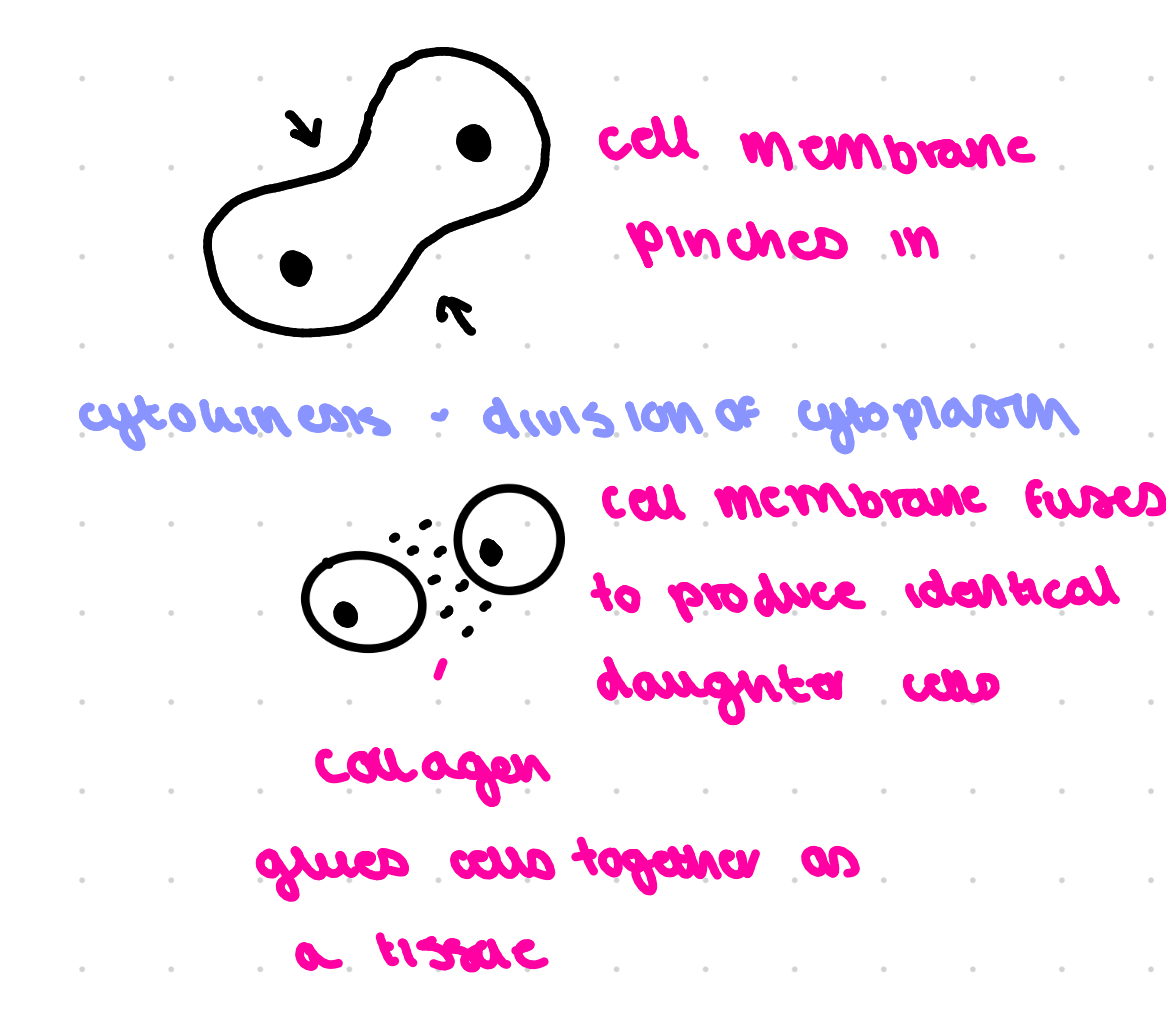 cell membrane
pinches in
cytokinesis - division of cytoplasm
cell membrane fuses
to produce identical
daughter cells
collagen
glues cells together as
a tissue